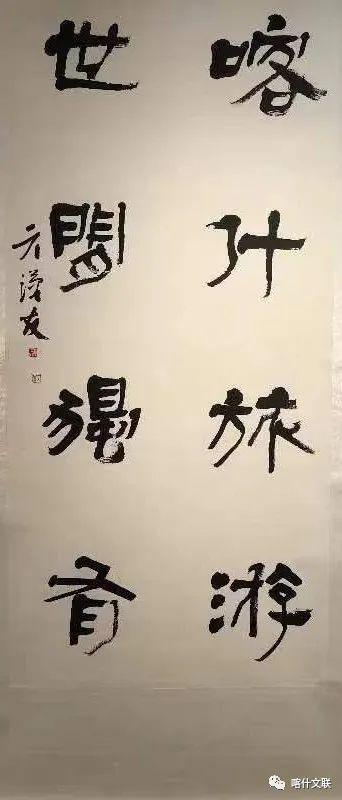 喀什旅游
世間獨有
亓漢友
喀什文联